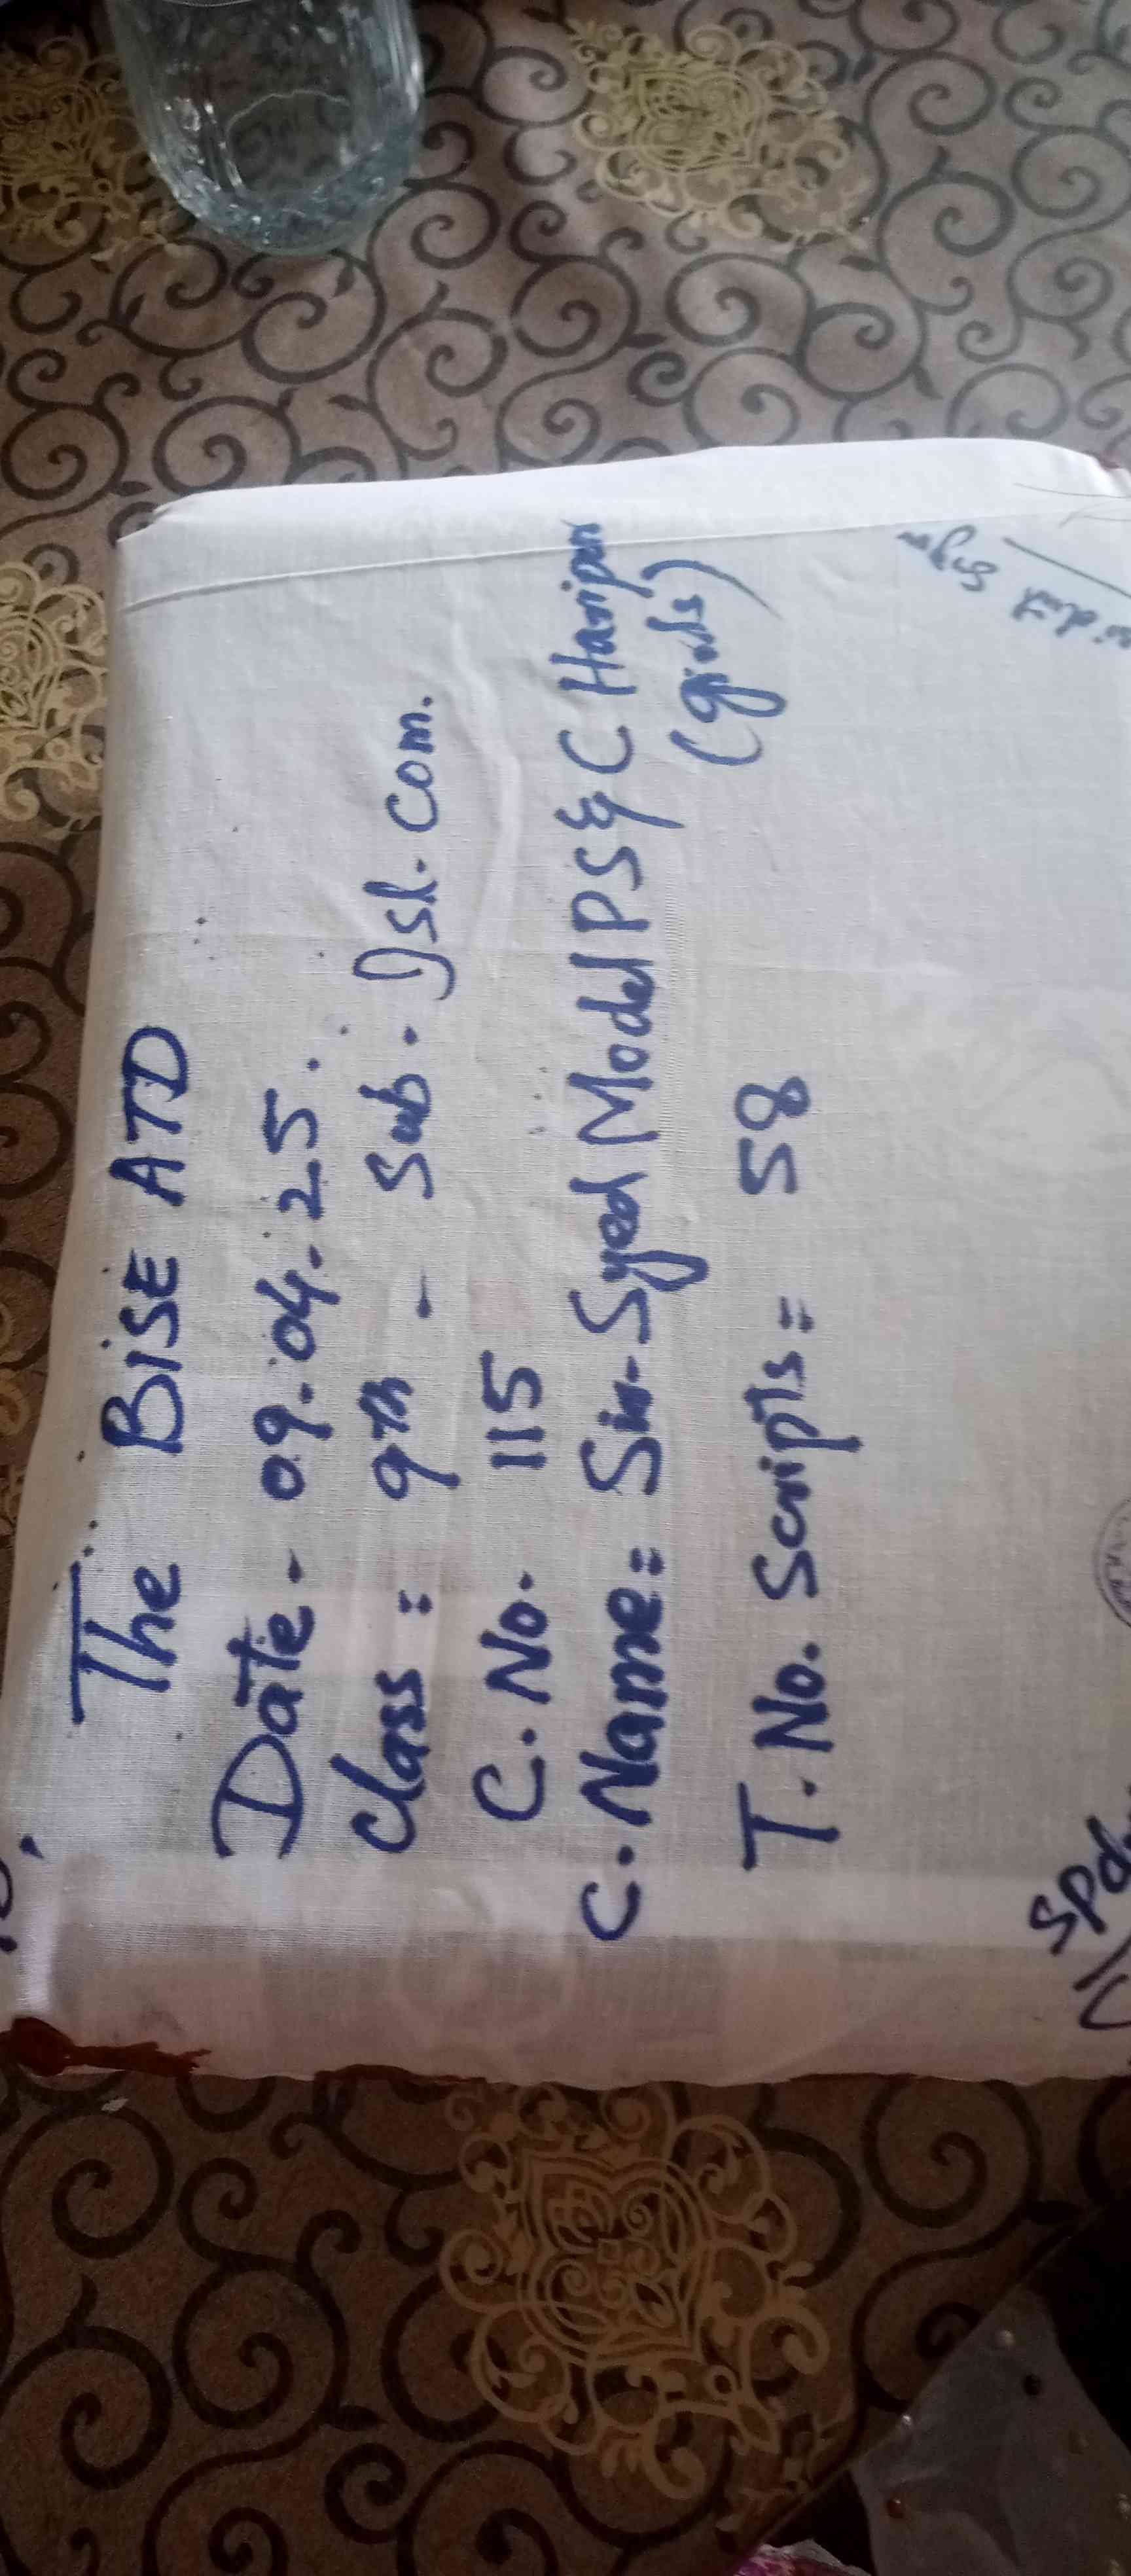 The BISE ATD
Date - 09.04.25.
Class : 9th - Sub. Isl. Com.
C. No. 115
C. Name = Sir Syed Model PS & C Haripur
(girls)
T. No. Scripts = 58